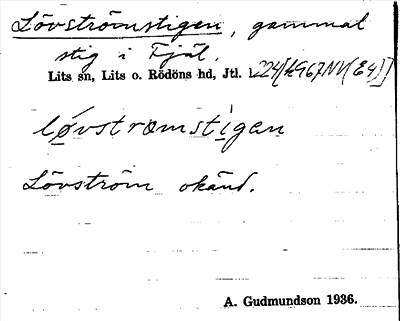 Lövströmstigen, gammal
stig i Fjäl.
Lits sn, Lits o. Rödöns hd, Jtl.
løvstrœmstigen
Lövström okänd.
A. Gudmundson 1936.